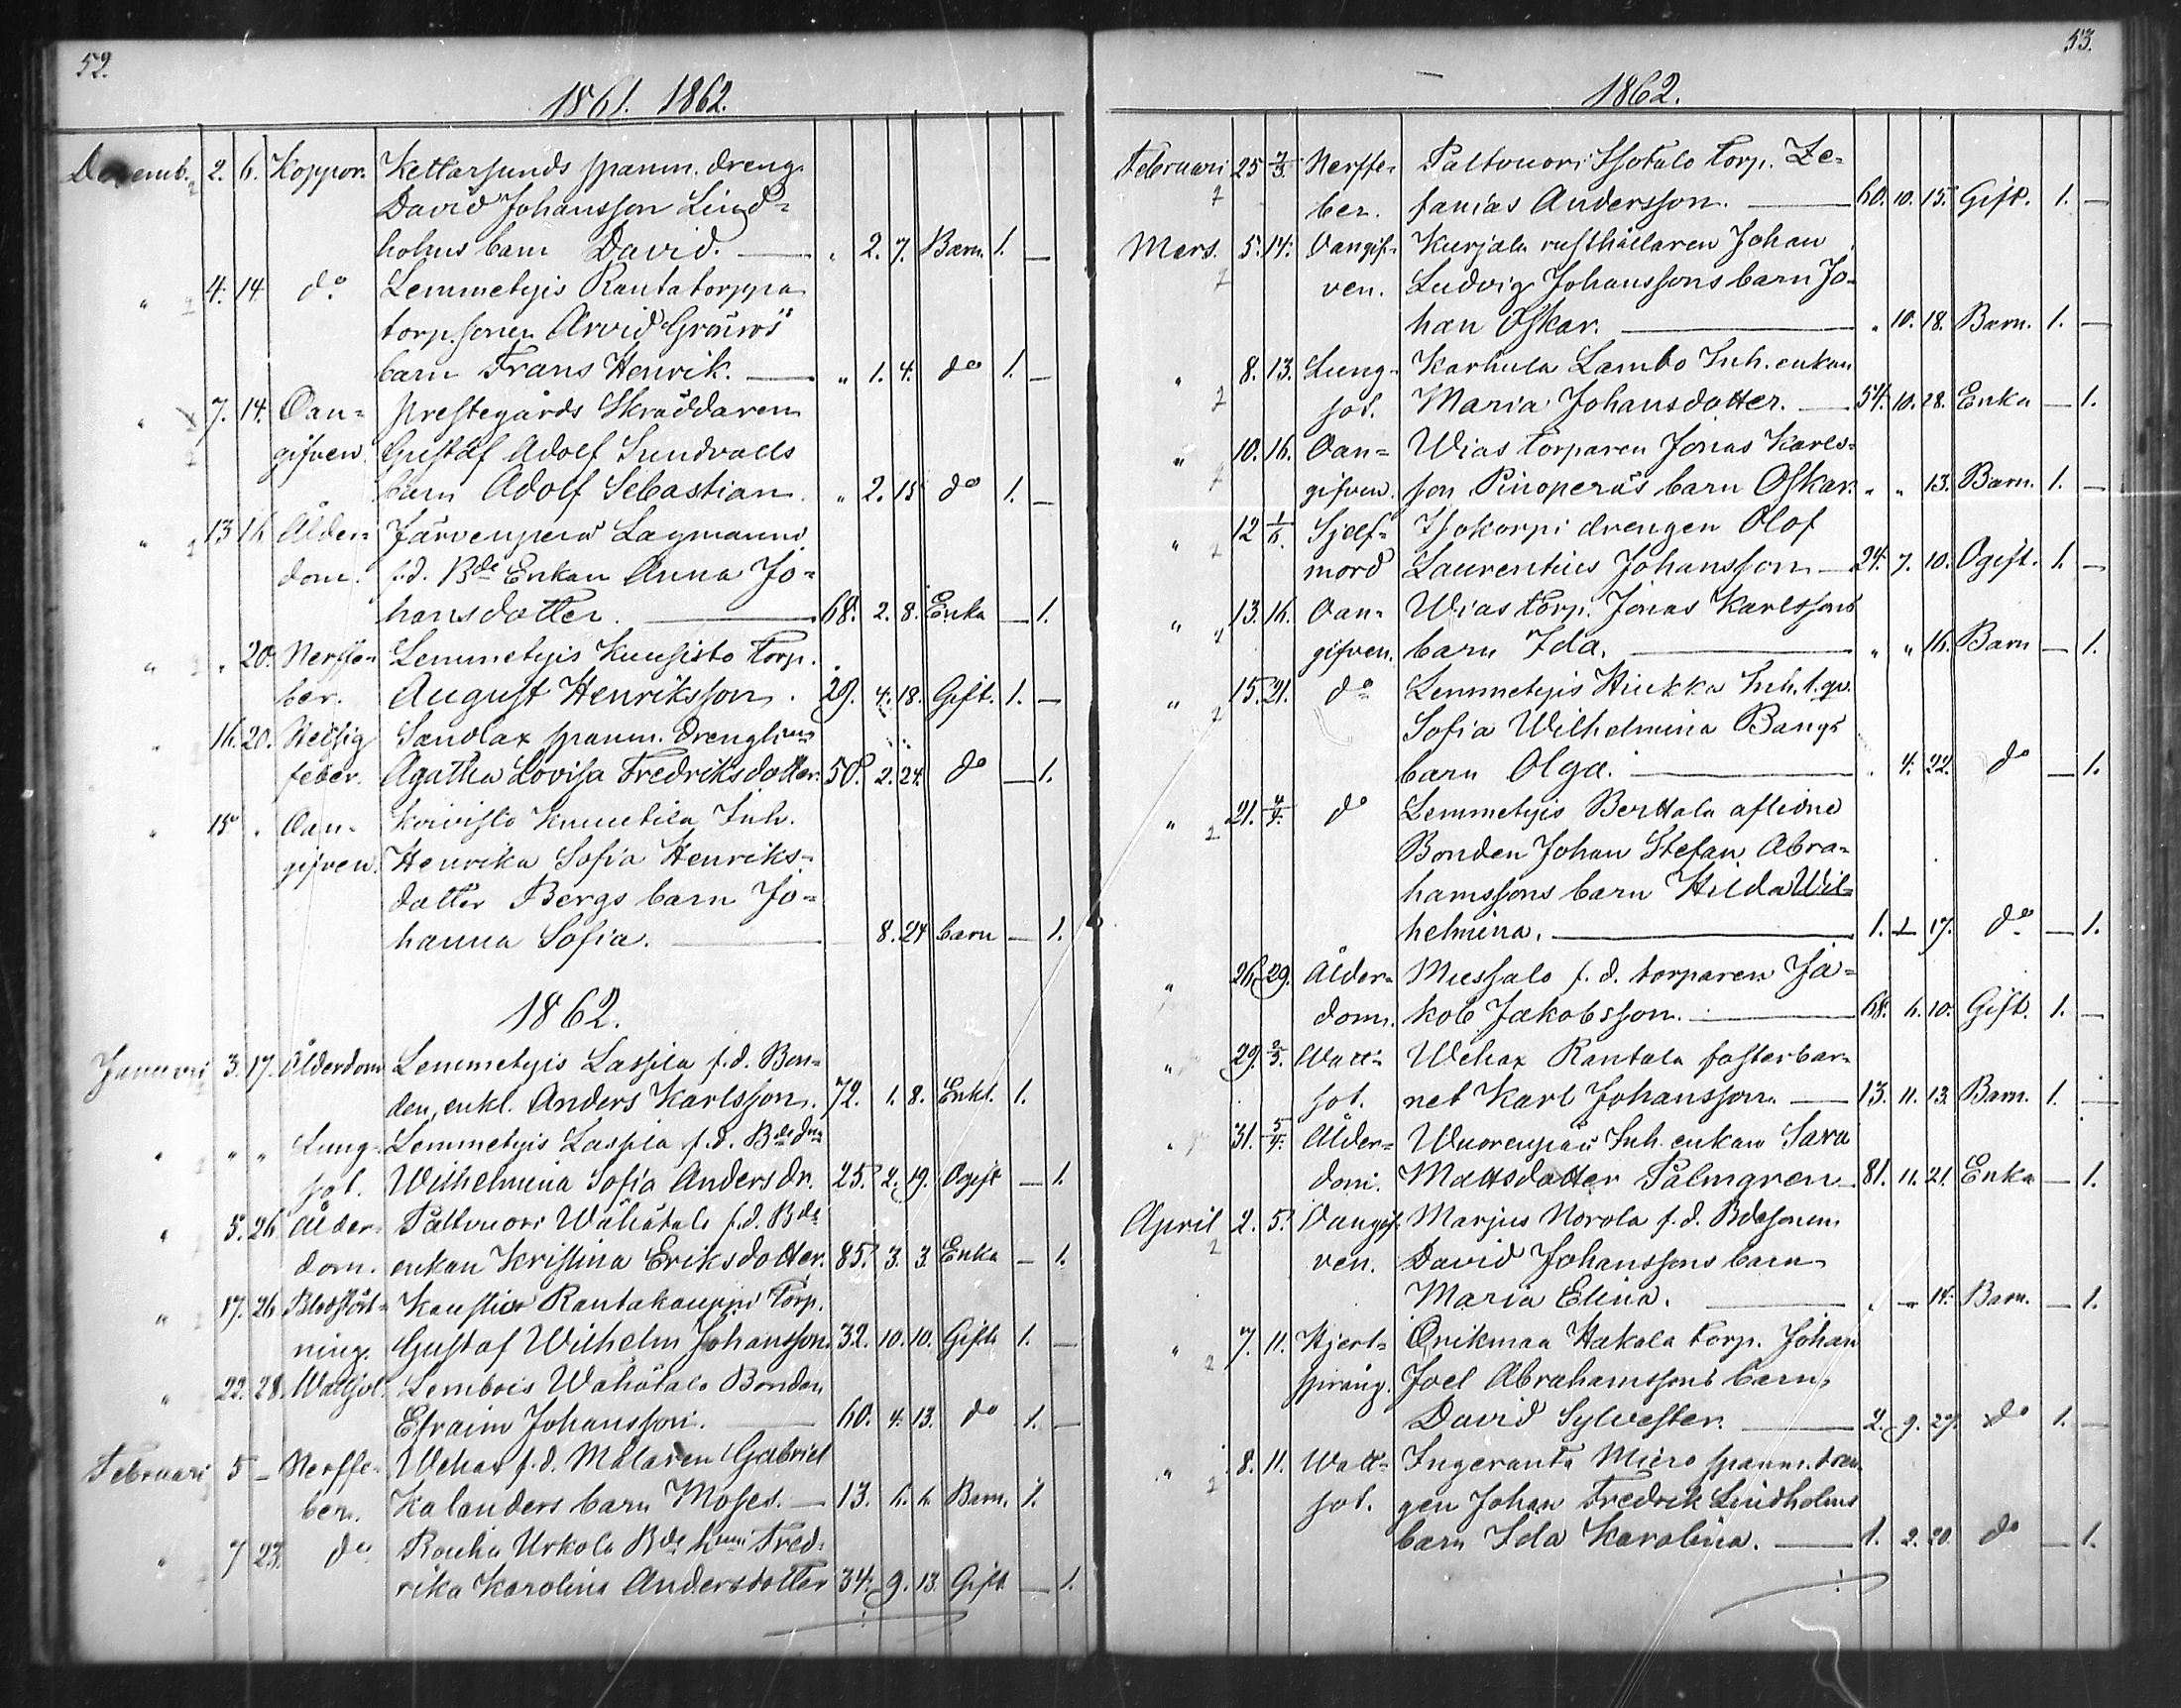 52.
1861. 1862.
Decemb. 2. 6. Koppor. Kettarsunds spanm. dreng.
David Johansson Lind=
holms barn David. — " 2. 7. Barn. 1. —
" 4. 14. do Lemmetyis Rantatorppa
torp.sonen Arvid Grönroos
barn Frans Henrik. — " 1. 4. do 1. —
" 7. 14. Oan= Prestegårds Skräddaren
gifven. Gustaf Adolf Sundvalls
barn Adolf Sebastian. " 2. 15 do 1. —
" 13 16 Ålder= Järvenperä Lagmanni
dom. f.d. Bde Enkan Anna Jo=
hansdotter. — 68. 2. 8. Enka — 1.
" " 20. Nerffe= Lemmetyis Kuusisto Torp.
ber. August Henriksson. 29. 4. 18. Gift. 1. —
" 16. 20. Hetsig Sandlax spanm. drengh:ns
feber. Agatha Lovisa Fredriksdotter. 50. 2. 24. do — 1.
" 15 " Oan= Koivisto Knuutila Inh.
gifven. Henrika Sofia Henriks=
dotter Bergs barn Jo=
hanna Sofia. — 8. 24 barn — 1.
1862.
Januari 3. 17. Ålderdom Lemmetyis Lassila f.d. Bon=
den, enkl. Anders Karlsson. 72. 1. 8. Enkl. 1.
" " " Lung= Lemmetyis Lassila f.d. Bde dr
sot. Wilhelmina Sofia Andersdr. 25. 2. 19. Ogift — 1.
" 5. 26 Ålder= Paltvuori Wähätalo f.d. Bde
dom. enkan Kristina Eriksdotter. 85. 3. 3. Enka — 1.
" 17. 26 Blodstört= Kaustio Rantakauppi Torp.
ning. Gustaf Wilhelm Johansson. 32. 10. 10. Gift. 1. —
" 22. 28. Wattsot. Lembois Wähätalo Bonden
Efraim Johansson. — 60. 4. 13. do 1. —
Februari 5 — Nerffe= Wehax f.d. Målaren Gabriel
ber. Kalanders barn Moses. — 13. 6. 6. Barn. 1.
" 7 23. do Rouhu Urkola Bde h:un Fred=
rika Karolina Andersdotter 34. 9. 13. Gift — 1.
53.
1862.
Februari 25 2/3. Nerffe= Paltvuori Isotalo Torp. Ze=
ber. fanias Andersson. — 60. 10. 15. Gift. 1. —
Mars. 5. 14. Oangif= Kurjala rusthållaren Johan
ven. Ludvig Johanssons barn Jo=
han Oskar. — " 10. 18. Barn. 1. —
" 8. 13. Lung= Karhula Lambo Inh. enkan
sot. Maria Johansdotter. — 54. 10. 28. Enka — 1.
" 10. 16. Oan= Wias torparen Jonas Karls=
gifven. son Pinoperäs barn Oskar. " " 13. Barn. 1. —
" 12 1/6. Sjelf= Isokorpi drengen Olof
mord Laurentius Johansson — 24. 7. 10. Ogift. 1. —
" 13. 16. Oan= Wias Torp. Jonas Karlssons
gifven. barn Ida. — " " 16. Barn — 1.
" 15. 21. do Lemmetyis Hiukka Inh. t. qv.
Sofia Wilhelmina Bangs
barn Olga. — " 4. 22. do — 1.
" 21. 4/4. do Lemmetyis Berttala aflidne
Bonden Johan Stefan Abra=
hamssons barn Hilda Wil=
helmina. — 1. 1 17. do — 1.
" 26 29. Ålder= Mussalo f.d. torparen Ja=
dom. kob Jakobsson. — 68. 6. 10. Gift. 1. —
" 29. 2/3. Watt= Wehax Rantala fosterbar=
sot. net Karl Johansson. — 13. 11. 13. Barn. 1. —
" 31. 5/4. Ålder= Wuorenpää Inh. enkan Sara
dom. Mattsdotter Palmgren — 81. 11. 21. Enka — 1.
April 2. 5. Oangif= Marjus Norola f.d. Bdesonen
ven. David Johanssons barn
Maria Elina. — " — 14. Barn. — 1.
" 7. 11. Hjert= Orikmaa Hakala Torp. Johan
språng. Joel Abrahamssons barn,
David Sylvester. — 2. 9. 27. do 1. —
" 8. 11. Watt= Ingeranta Miero spanm. dren=
sot. gen Johan Fredrik Lindholms
barn Ida Karolina. — 1. 2. 20. do — 1.